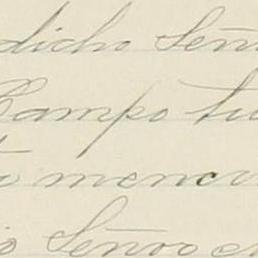 dicho Seño
Campo tu
a menci
io Señor e